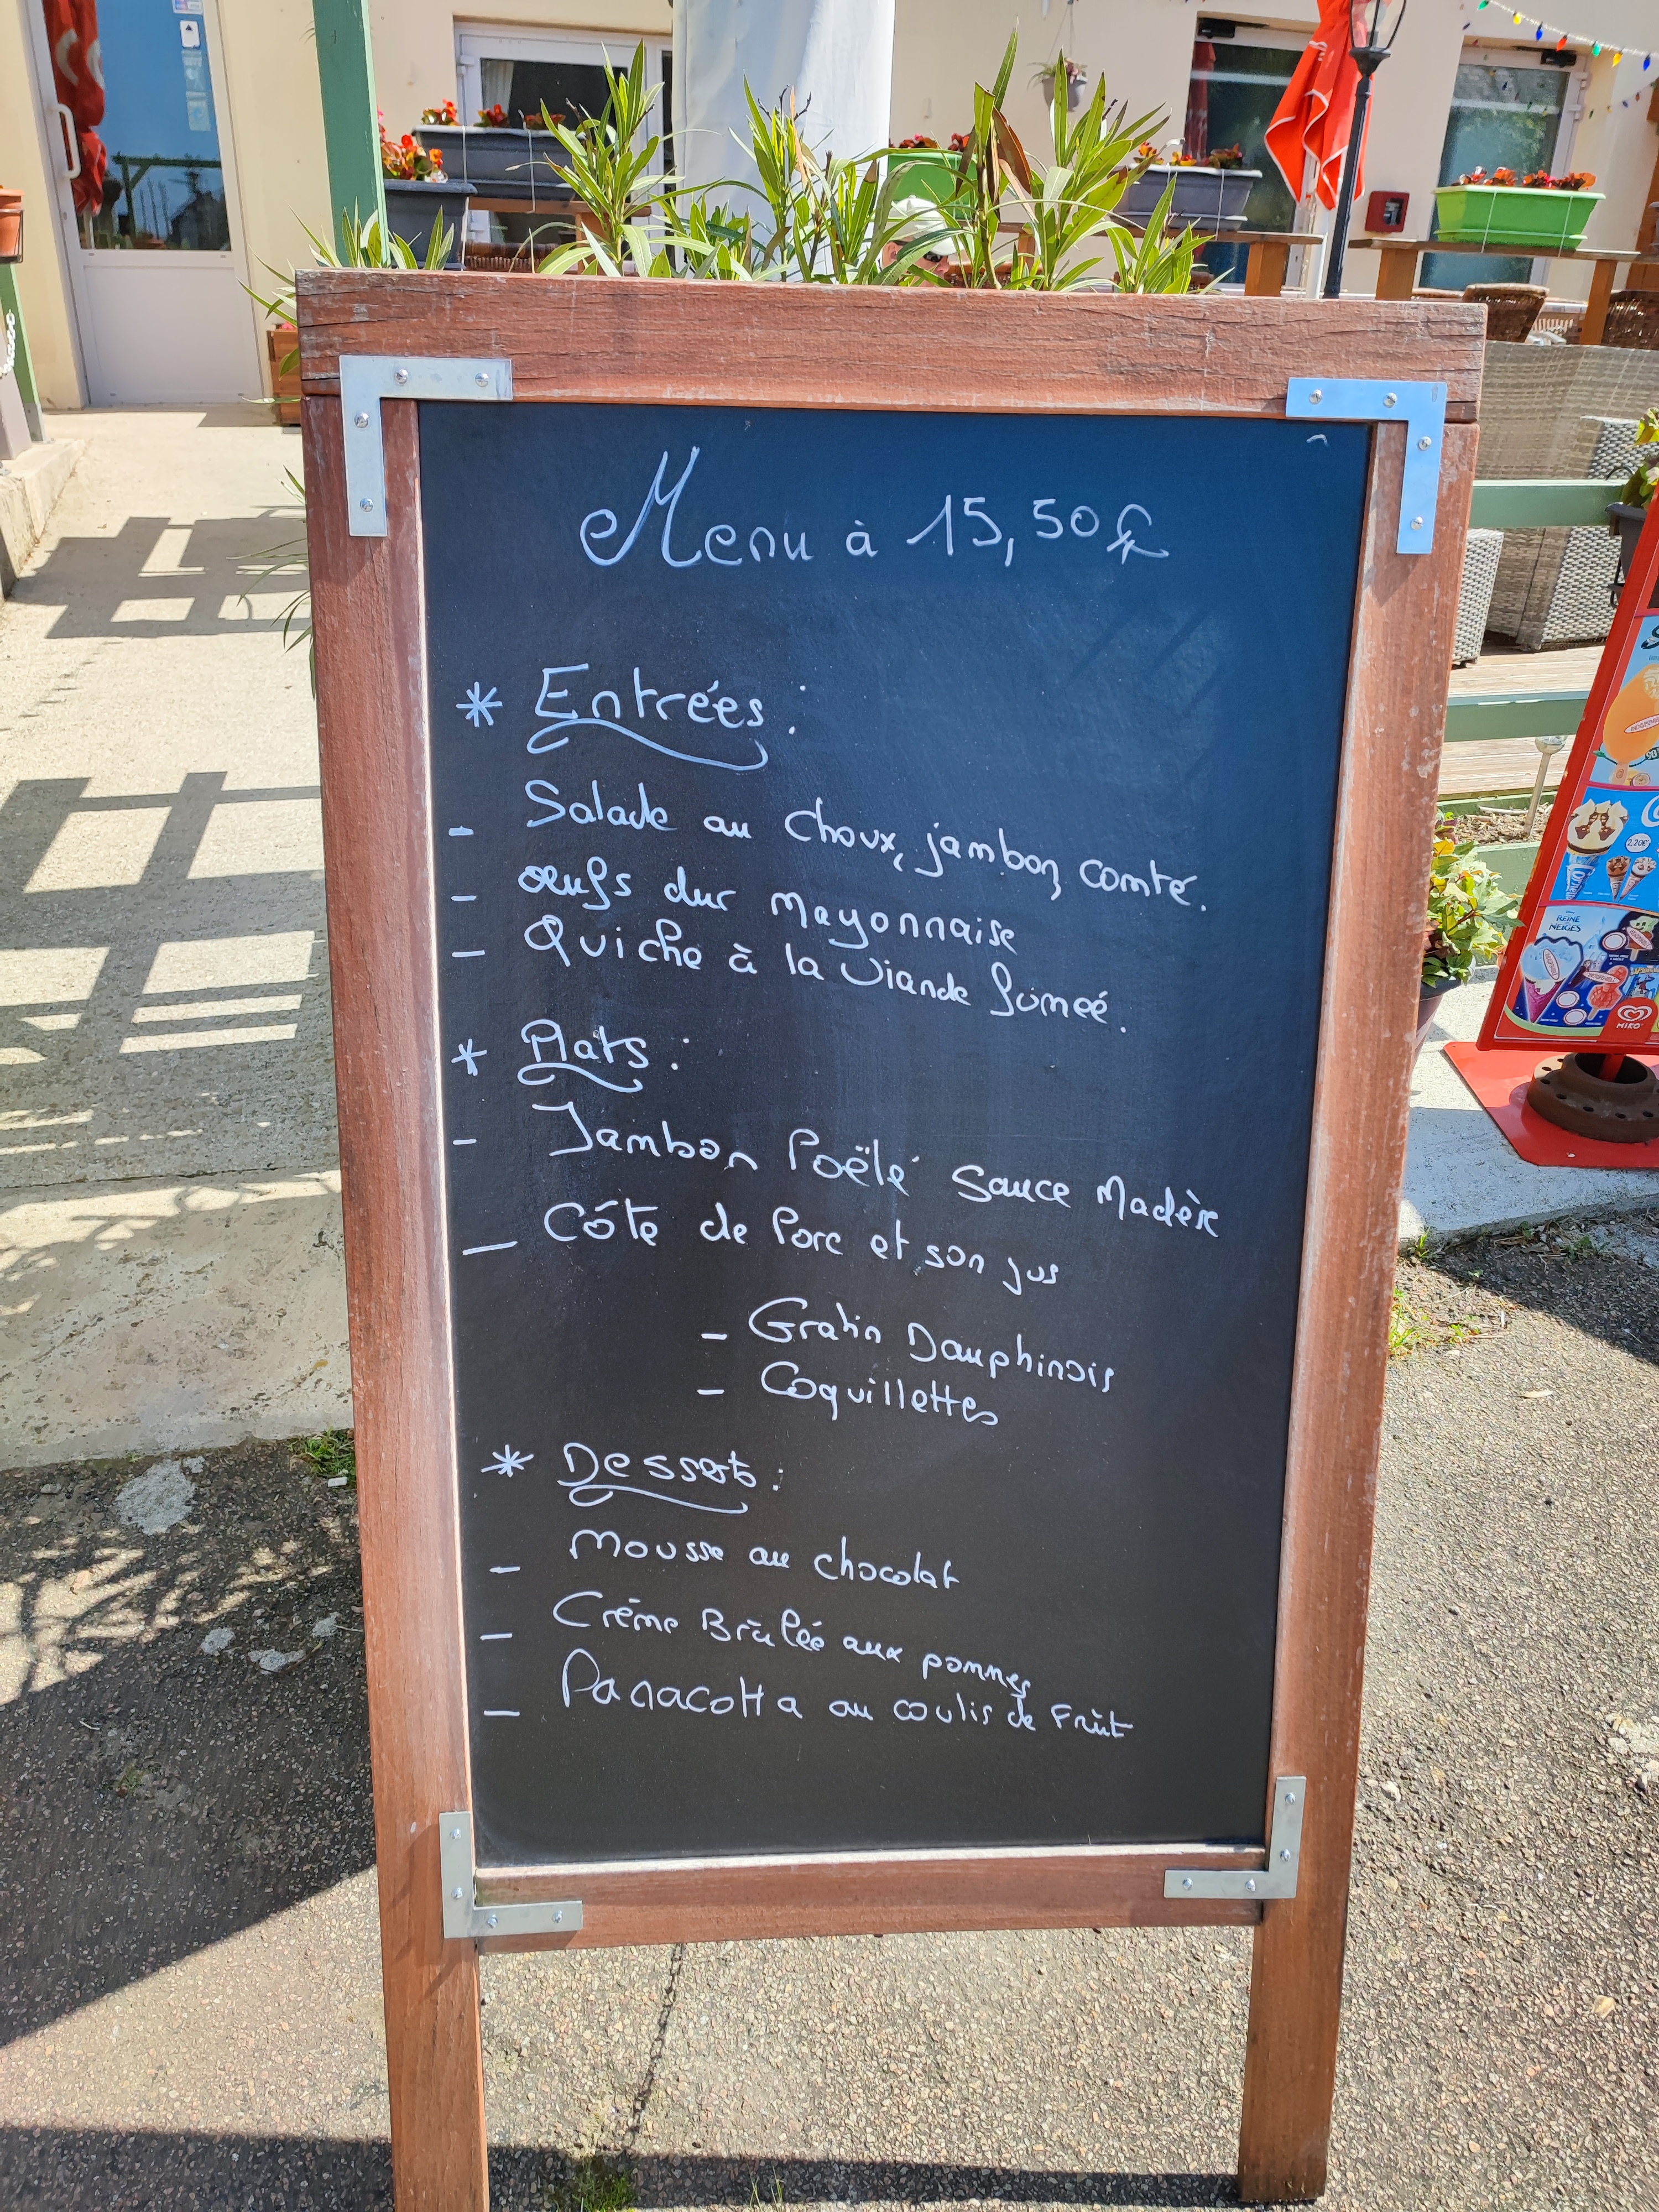 Menu à 15,50€
* Entrées :
- Salade au choux, jambon comté.
- œufs dur mayonnaise
- Quiche à la viande fumeé.
* Plats :
- Jambon Poëlé sauce Madère
- Côte de Porc et son jus
- Gratin Dauphinois
- Coquillettes
* Desserts :
- Mousse au chocolat
- Crème Brûlée aux pommes
- Panacotta au coulis de Fruit
2,20€
REINE
NEIGES
MIKO